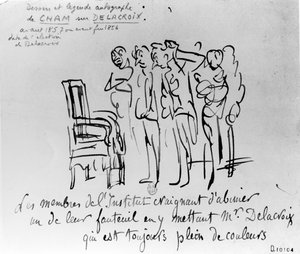 Dessin et légende autographe
de CHAM sur DELACROIX
avant 1857
date de l'élection
de Delacroix
Les membres de l'Institut craignant d'abimer
un de leur fauteuil en y mettant Mr. Delacroix
qui est toujours plein de couleurs